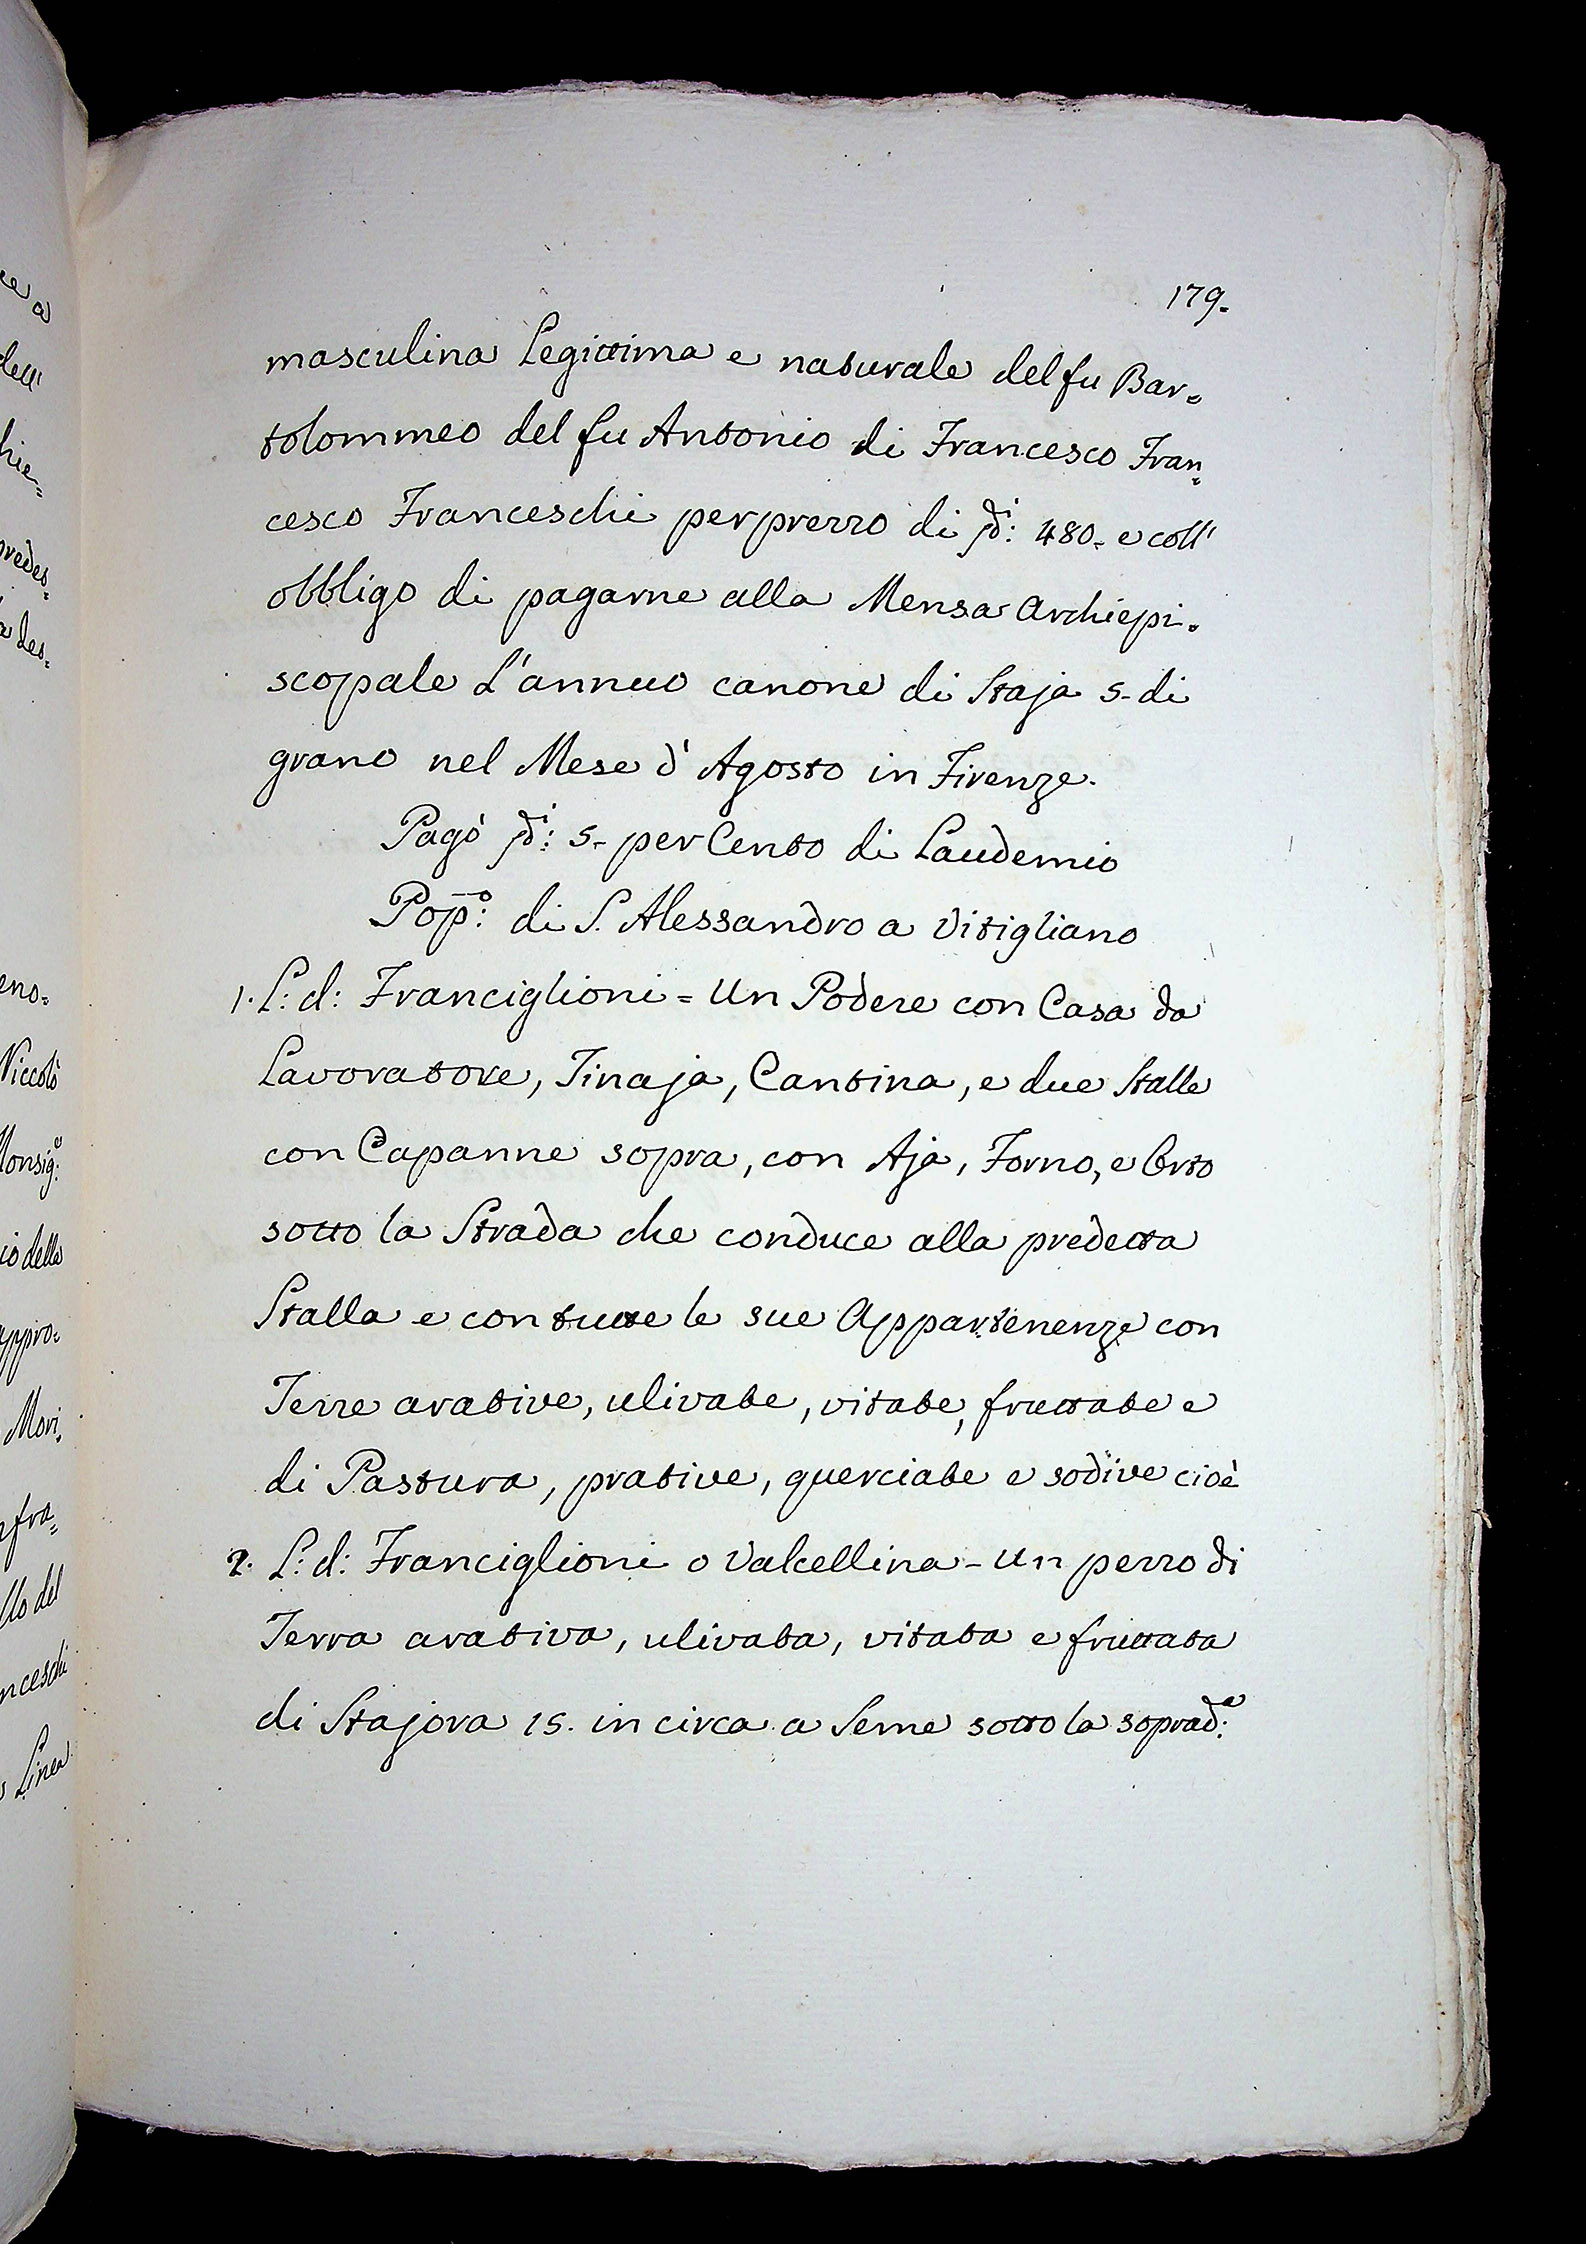 179.
masculina Legittima e naturale del fu Bar=
tolommeo del fu Antonio di Francesco Fran=
cesco Franceschi per prezzo di 480. e coll'
obbligo di pagarne alla Mensa Archiepi=
scopale L'annuo canone di Staja 5. di
grano nel Mese d'Agosto in Firenze.
Pagò 5. per Cento di Laudemio
Pop.º: di S. Alessandro a Vitigliano
1. L: d: Franciglioni = Un Podere con Casa da
Lavoratore, Tinaja, Cantina, e due Stalle
con Capanne sopra, con Aja, Forno, e Orto
sotto la Strada che conduce alla predetta
Stalla e con tutte le sue Appartenenze con
Terre arative, ulivate, vitate, fruttate e
di Pastura, prative, querciate e sodive cioè
2. L: d: Franciglioni o Valcellina - Un pezzo di
Terra arativa, ulivata, vitata e fruttata
di Stajora 15. in circa a Seme sotto la soprad:ª